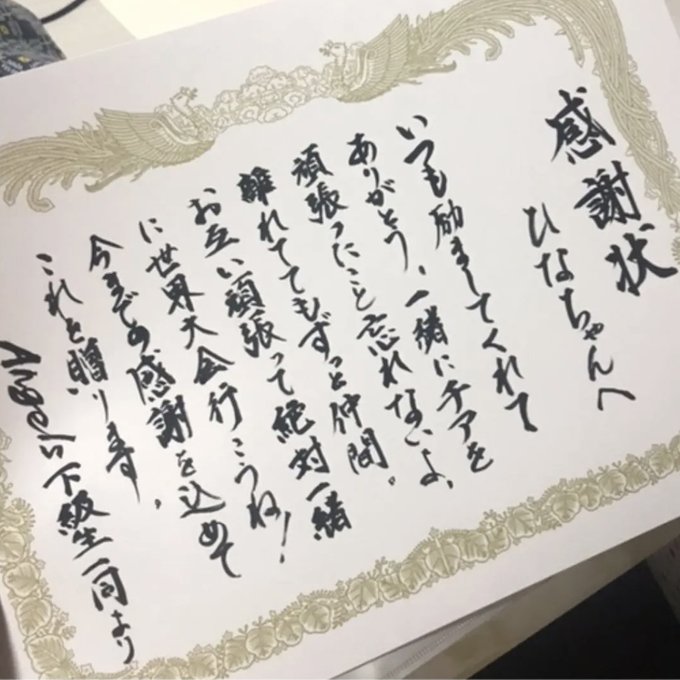 感謝状
ひなちゃんへ
いつも励ましてくれて
ありがとう、一緒にチアを
頑張ったこと忘れないよ、
離れててもずっと仲間。
お互い頑張って絶対一緒
に世界大会行こうね!
今までの感謝を込めて
これを贈ります。
Angels下級生一同より